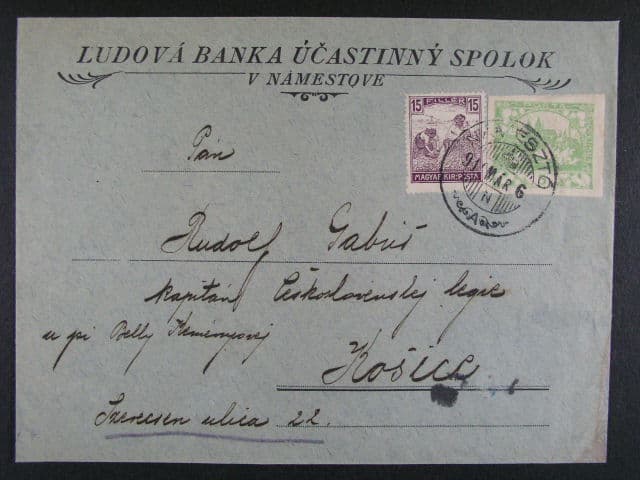 ĽUDOVÁ BANKA ÚČASTINNÝ SPOLOK
V NÁMESTOVE
15 FILLER 15
MAGYAR KIR. POSTA
919 MÁR 6
N
A
Pán
Rudolf Gabriš
kapitán Československej legie
u pi Belly Keményovej
Košice
Szerecsen ulica 22.